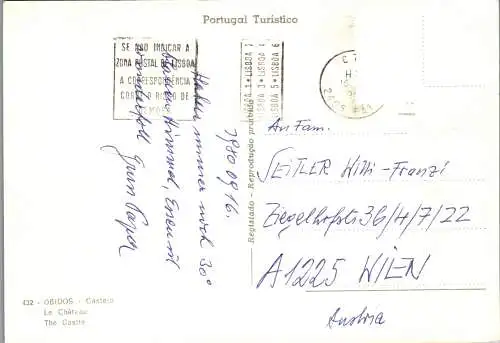 Portugal Turístico
SE NÃO INDICAR A
ZONA POSTAL DE LISBOA
A CORRESPONDÊNCIA
CORRE O RISCO DE
LISBOA 1 • LISBOA 2
LISBOA 3 • LISBOA 4
LISBOA 5 • LISBOA 6
1980 09 16.
Haben immer noch 30°
blauen Himmel, Essen ist
wundervoll
Registado - Reprodução proibida
An Fam.
SEITLER Willi-Franzi
Ziegelhofstr 36/4/7/22
A 1225 WIEN
Austria
432 - OBIDOS - Castelo
Le Château
The Castle